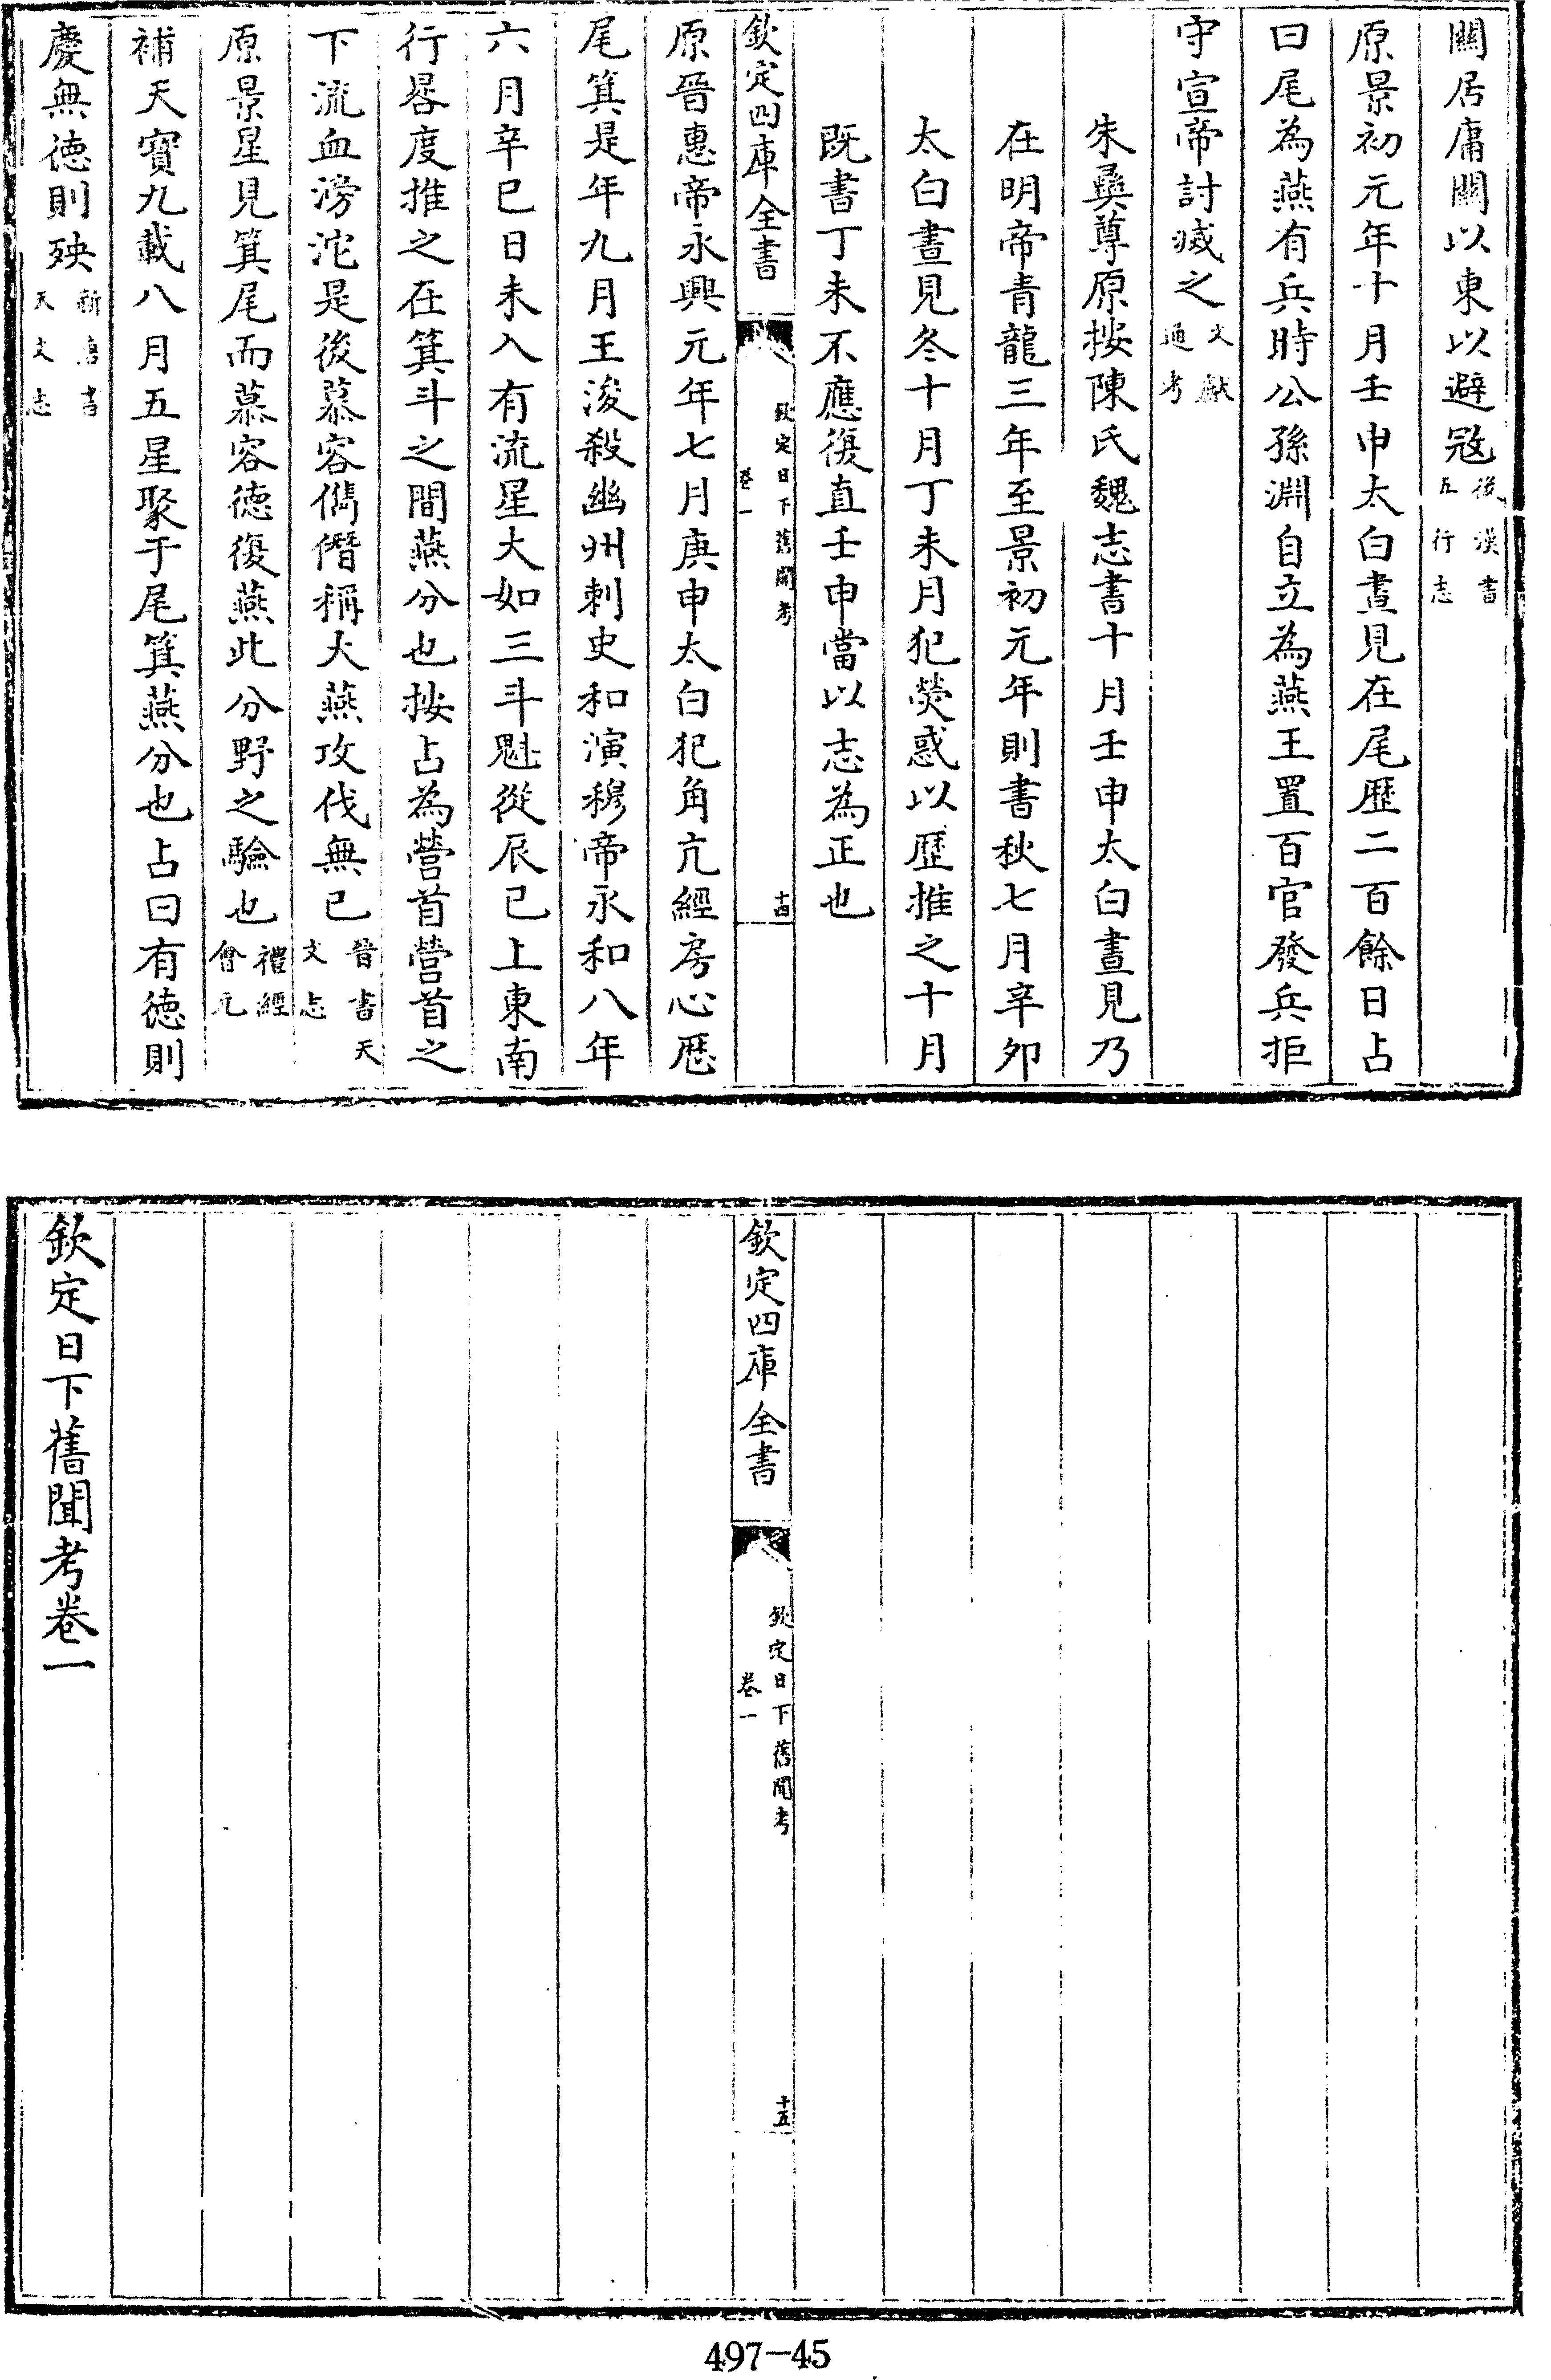 關居庸關以東以避冦後漢書五行志
原景初元年十月壬申太白晝見在尾歷二百餘日占
曰尾為燕有兵時公孫淵自立為燕王置百官發兵拒
守宣帝討滅之文獻通考
朱彝尊原按陳氏魏志書十月壬申太白晝見乃
在明帝青龍三年至景初元年則書秋七月辛卯
太白晝見冬十月丁未月犯熒惑以歴推之十月
既書丁未不應復直壬申當以志為正也
欽定四庫全書
欽定日下舊聞考
卷一
十四
原晉惠帝永興元年七月庚申太白犯角亢經房心歴
尾箕是年九月王浚殺幽州刺史和演穆帝永和八年
六月辛巳日未入有流星大如三斗魁從辰巳上東南
行晷度推之在箕斗之間燕分也按占為營首營首之
下流血滂沱是後慕容儁僭稱大燕攻伐無已晉書天文志
原景星見箕尾而慕容德復燕此分野之驗也禮經會元
補天寶九載八月五星聚于尾箕燕分也占曰有德則
慶無德則殃新唐書天文志
欽定四庫全書
欽定日下舊聞考
卷一
十五
欽定日下舊聞考卷一
497-45